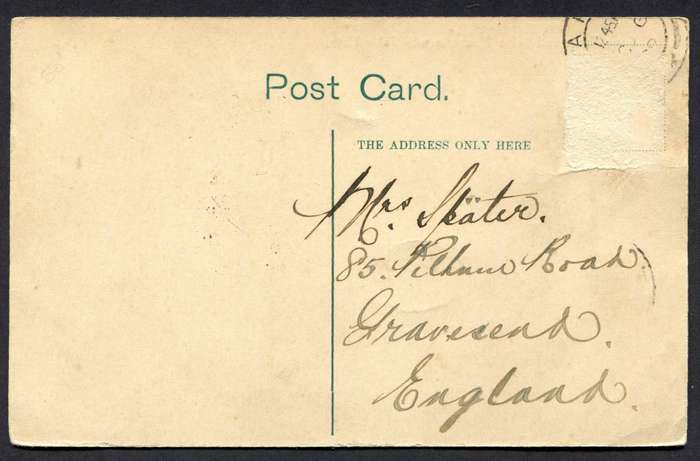 Post Card.
THE ADDRESS ONLY HERE
Mrs. Skäter.
85. Pelham Road
Gravesend.
England.